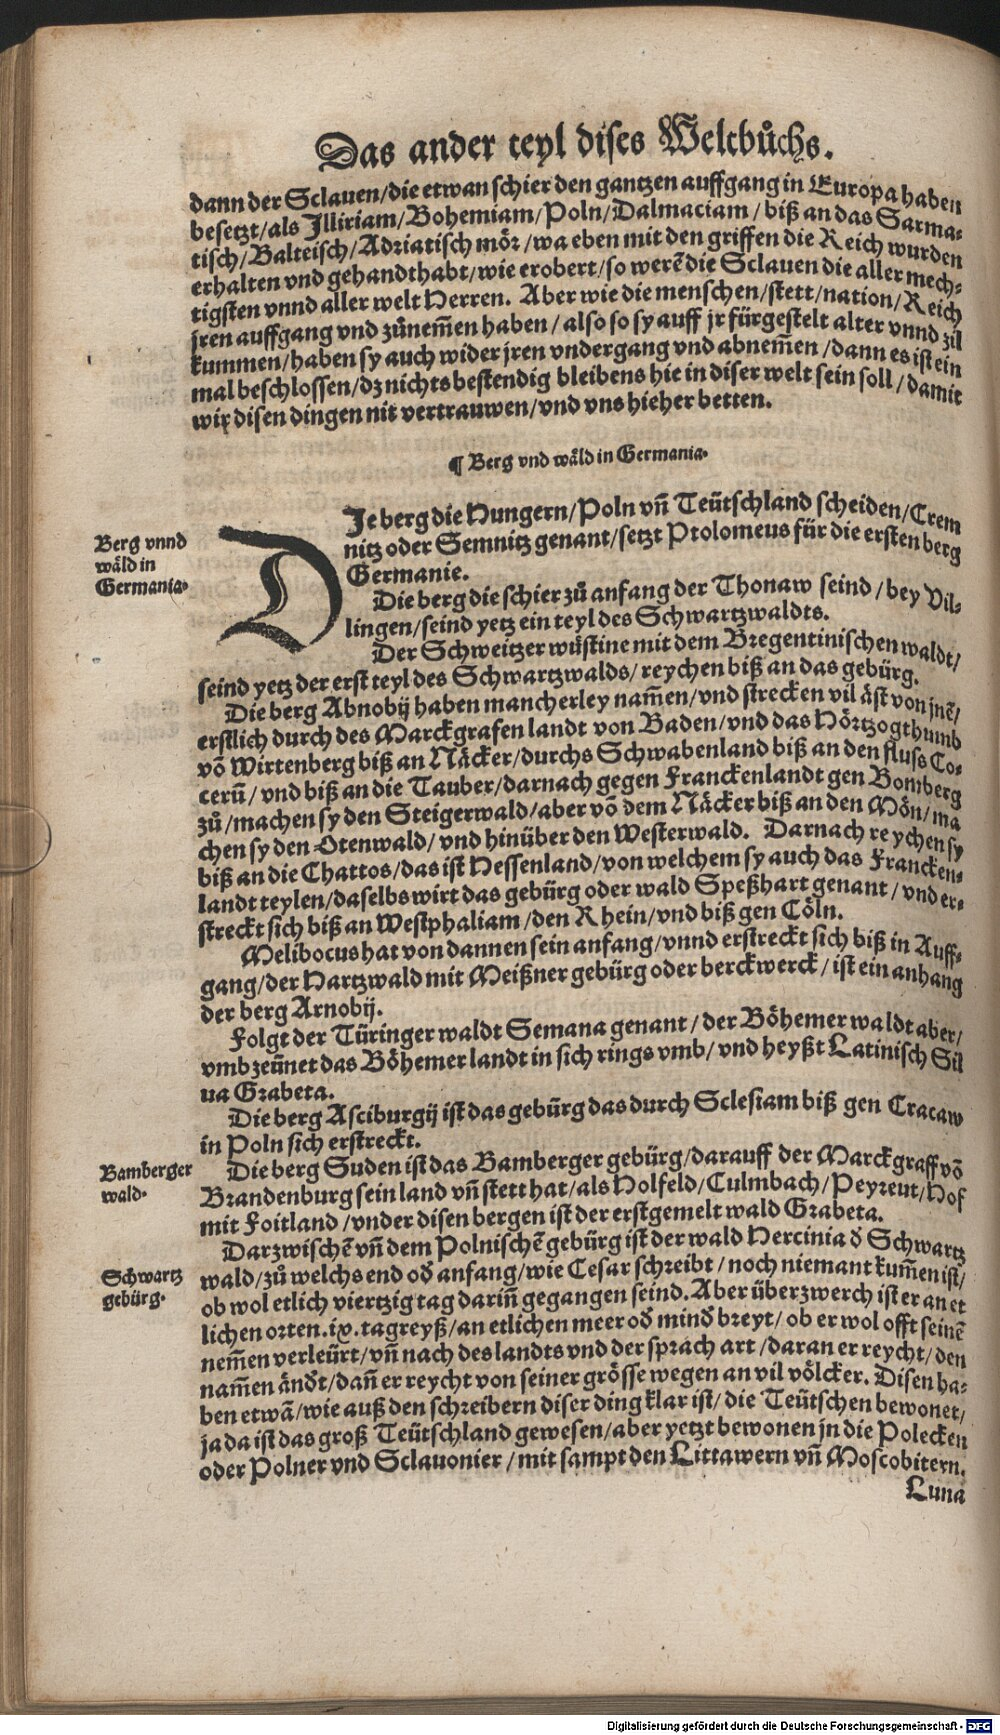 Das ander teyl dises Weltbůchs.
dann der Sclauen/die etwan schier den gantzen auffgang in Europa haben
besetzt/als Illiriam/Bohemiam/Poln/Dalmaciam/biß an das Sarma-
tisch/Balteisch/Adriatisch mör/wa eben mit den griffen die Reich wurden
erhalten vnd gehandthabt/wie erobert/so werē die Sclauen die aller mech-
tigsten vnnd aller welt Herren. Aber wie die menschen/stett/nation/Reich
jren auffgang vnd zůnem̄en haben/also so sy auff jr fürgestelt alter vnnd zil
kummen/haben sy auch wider jren vndergang vnd abnem̄en/dann es ist ein
mal beschlossen/dz nichts bestendig bleibens hie in diser welt sein soll/damit
wir disen dingen nit vertrauwen/vnd vns hieher betten.
¶ Berg vnd wäld in Germania.
Berg vnnd
wäld in
Germania.
DIe berg die Hungern/Poln vn̄ Teütschland scheiden/Crem
nitz oder Semnitz genant/setzt Ptolomeus für die ersten berg
Germanie.
Die berg die schier zů anfang der Thonaw seind/bey Vil-
lingen/seind yetz ein teyl des Schwartzwaldts.
Der Schweitzer wüstine mit dem Bregentinischen waldt/
seind yetz der erst teyl des Schwartzwalds/reychen biß an das gebürg.
Die berg Abnobij haben mancherley nam̄en/vnd strecken vil äst von jnē/
erstlich durch des Marckgrafen landt von Baden/vnd das Hörtzogthumb
vō Wirtenberg biß an Näcker/durchs Schwabenland biß an den fluss Co-
cerū/vnd biß an die Tauber/darnach gegen Franckenlandt gen Bomberg
zů/machen sy den Steigerwald/aber vō dem Näcker biß an den Mön/ma
chen sy den Otenwald/vnd hinüber den Westerwald. Darnach reychen sy
biß an die Chattos/das ist Hessenland/von welchem sy auch das Francken-
landt teylen/daselbs wirt das gebürg oder wald Speßhart genant/vnd er-
streckt sich biß an Westphaliam/den Rhein/vnd biß gen Cöln.
Melibocus hat von dannen sein anfang/vnnd erstreckt sich biß in Auff-
gang/der Hartzwald mit Meißner gebürg oder berckwerck/ist ein anhang
der berg Arnobij.
Folgt der Türinger waldt Semana genant/der Böhemer waldt aber/
vmbzeünet das Böhemer landt in sich rings vmb/vnd heyßt Latinisch Sil
ua Grabeta.
Die berg Asciburgij ist das gebürg das durch Sclesiam biß gen Cracaw
in Poln sich erstreckt.
Bamberger
wald.
Die berg Suden ist das Bamberger gebürg/darauff der Marckgraff vō
Brandenburg sein land vn̄ stett hat/als Holfeld/Culmbach/Peyreut/Hof
mit Foitland/vnder disen bergen ist der erstgemelt wald Grabeta.
Schwartz
gebürg.
Darzwischē vn̄ dem Polnischē gebürg ist der wald Hercinia đ Schwartz
wald/zů welchs end ođ anfang/wie Cesar schreibt/noch niemant kum̄en ist/
ob wol etlich viertzig tag darin̄ gegangen seind. Aber überzwerch ist er an et
lichen orten .ix. tagreyß/an etlichen meer ođ minđ breyt/ob er wol offt seinē
nem̄en verleürt/vn̄ nach des landts vnd der sprach art/daran er reycht/den
nam̄en änđt/dan̄ er reycht von seiner grösse wegen an vil völcker. Disen ha-
ben etwā/wie auß den schreibern diser ding klar ist/die Teütschen bewonet/
ja da ist das groß Teütschland gewesen/aber yetzt bewonen jn die Polecken
oder Polner vnd Sclauonier/mit sampt den Littawern vn̄ Moscobitern.
Luna
Digitalisierung gefördert durch die Deutsche Forschungsgemeinschaft - DFG